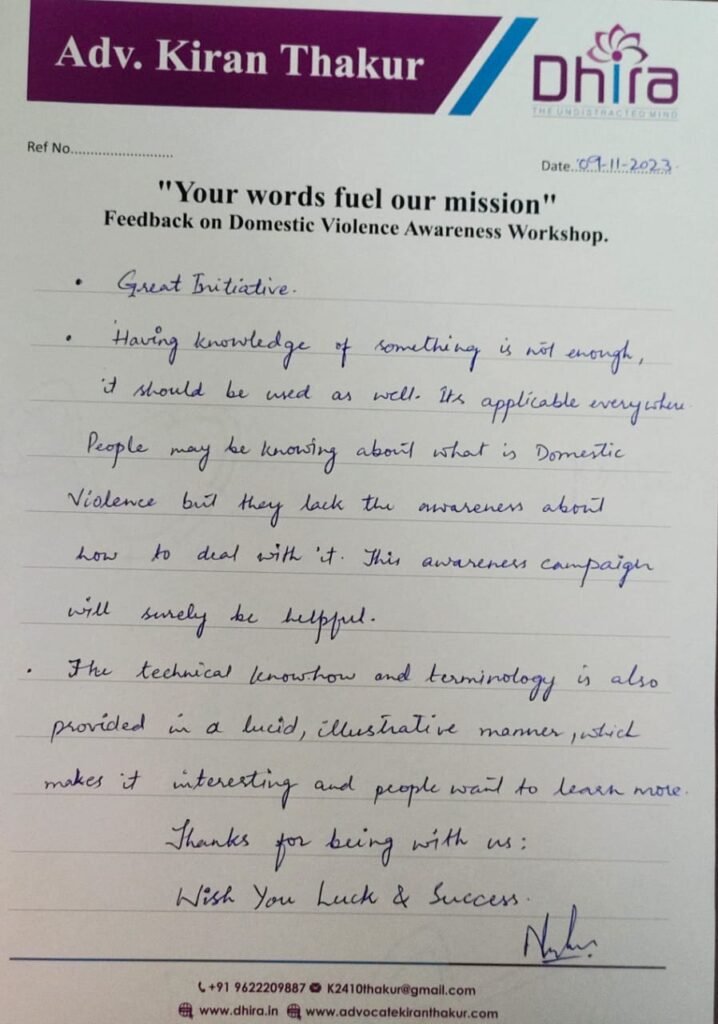 Adv. Kiran Thakur
Dhira
THE UNDISTRACTED MIND
Ref No............................
Date..09-11-2023.
"Your words fuel our mission"
Feedback on Domestic Violence Awareness Workshop.
• Great Initiative.
• Having knowledge of something is not enough,
it should be used as well. Its applicable everywhere.
People may be knowing about what is Domestic
Violence but they lack the awareness about
how to deal with it. This awareness campaign
will surely be helpful.
• The technical knowhow and terminology is also
provided in a lucid, illustrative manner, which
makes it interesting and people want to learn more.
Thanks for being with us:
Wish You Luck & Success.
+91 9622209887 K2410thakur@gmail.com
www.dhira.in www.advocatekiranthakur.com